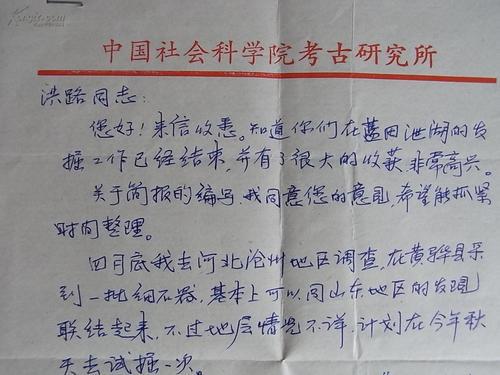 中国社会科学院考古研究所
洪路同志：
您好！来信收悉。知道你们在蓝田泄湖的发
掘工作已经结束，并有了很大的收获，非常高兴。
关于简报的编写，我同意您的意见，希望能抓紧
时间整理。
四月底我去河北沧州地区调查，在黄骅县采
到一批细石器，基本上可以同山东地区的发现
联结起来，不过地层情况不详，计划在今年秋
天去试掘一次。